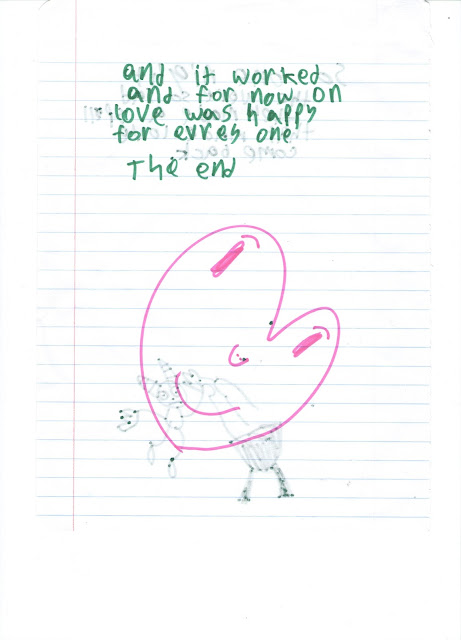 and it worked
and for now on
love was happy
for evrey one
The end